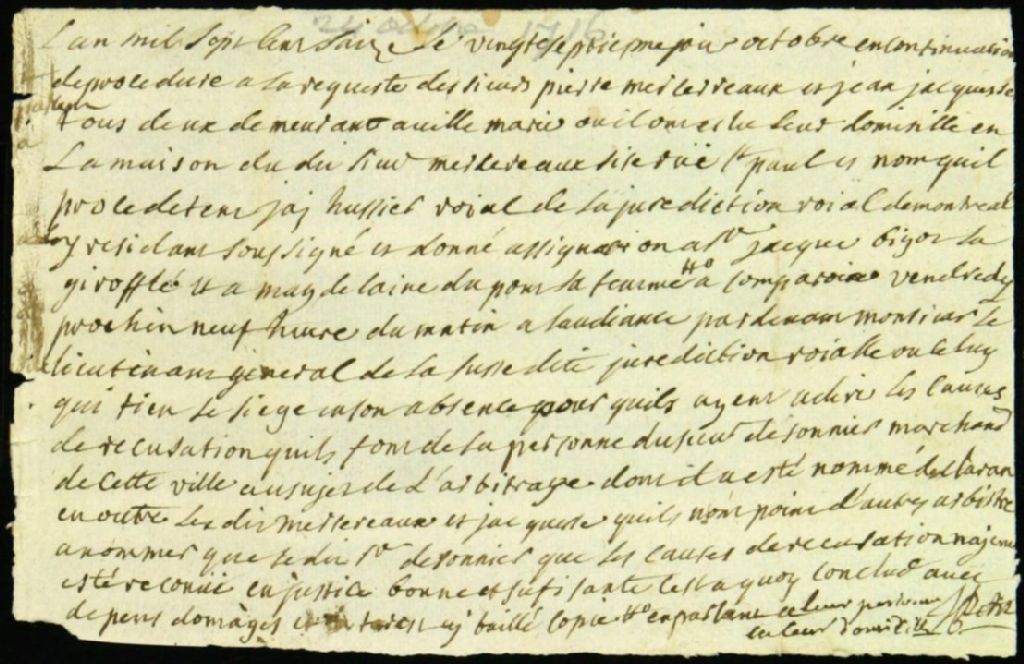 24 octobre 1716
Lan mil sept cent saize le vingt septiesme jour octobre en continuation
de procedure a la requeste des sieurs pierre mersereaux et jean jacquesse
tous deux demeurant a ville marie ou il ont eslu leur domisille en
La maison du dit sieur mersereaux sise rüe st paul et nom quil
procedetent jaj hussier roial de la jurediction roial de montreal
y residant soussigné et donné assignation a sr jacque bigot la
girofflé et a magdelaine du pont sa femme a comparoir vendredy
prochin neuf heure du matin a laudiance pardevant monsieur le
lieutenant general de la susse dite juredition roialle ou celuy
qui tien le siege en son absence pour quils ayent a dire les causes
de recusation quils font de la personne du sieur de sonnier marchand
de cette ville au sujet de L'arbitrage dont il a esté nommé declaran
en outre les dit mersereaux et jacquesse quils nom poin d'autres arbistre
a nommer que le dit sr desonnier que les causes de recusation najent
esté reconüe en justice bonne et sufisante cest a quoy conclud avec
depens domages et interest et baillé copie en parlant a leur personne
en leur domicille